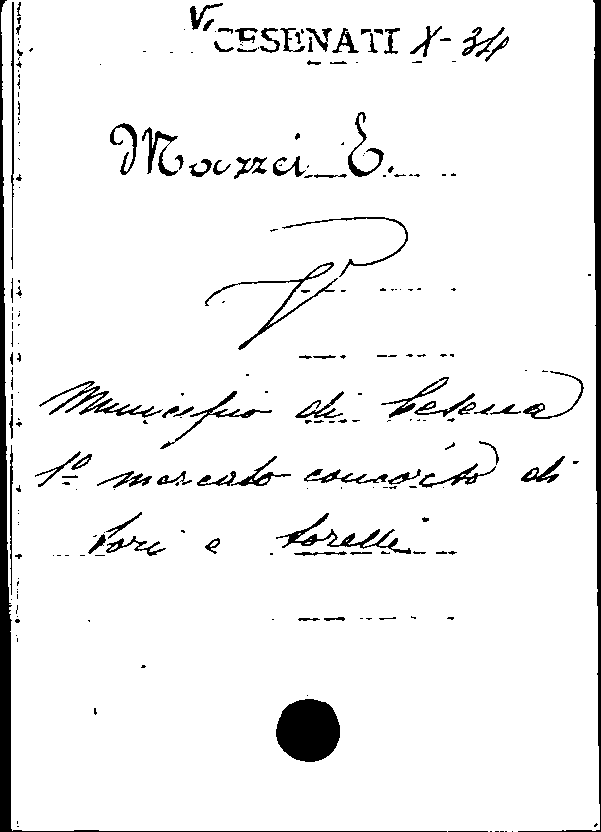 V. CESENATI X-34
Mazzei E.
V
Municipio di Cesena
1º mercato concorso di
tori e torelli